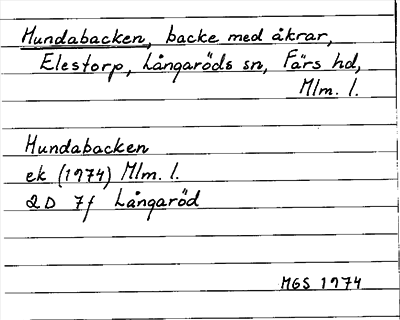 Hundabacken, backe med åkrar,
Elestorp, Långaröds sn, Färs hd,
Mlm. l.
Hundabacken
ek (1974) Mlm. l.
2D 7f Långaröd
MGS 1974